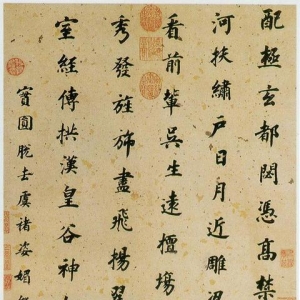 配極玄都閟憑高禁
河扶繡戶日月近雕
看前輩吳生遠擅場
秀發旌旆盡飛揚翠
室經傳拱漢皇谷神
寶圓脫去虞褚姿媚